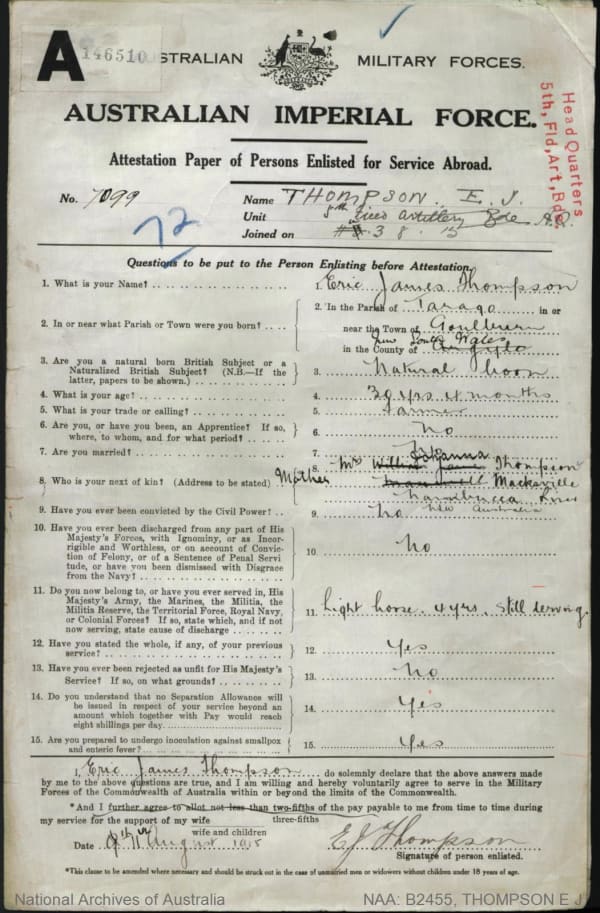 A
146510
AUSTRALIAN MILITARY FORCES.
AUSTRALIAN IMPERIAL FORCE.
Head Quarters
5th, Fld, Art, Bde
Attestation Paper of Persons Enlisted for Service Abroad.
No. 7099
Name THOMPSON. E. J.
Unit 5th Field Artillery Bde H.Q.
72
Joined on 3 8. 15
Questions to be put to the Person Enlisting before Attestation.
1. What is your Name? 1. Eric James Thompson
2. In or near what Parish or Town were you born? 2. In the Parish of Tarago in or
near the Town of Goulburn
New South Wales
in the County of Argyle
3. Are you a natural born British Subject or a
Naturalized British Subject? (N.B.—If the
latter, papers to be shown.) 3. Natural Born
4. What is your age? 4. 30 yrs 11 months
5. What is your trade or calling? 5. Farmer
6. Are you, or have you been, an Apprentice? If so,
where, to whom, and for what period? 6. No
7. Are you married? 7.
8. Who is your next of kin? (Address to be stated) Mother 8. Mrs Johanna Thompson
Macksville
Nambucca River
NSW Australia
9. Have you ever been convicted by the Civil Power? 9. No
10. Have you ever been discharged from any part of His
Majesty's Forces, with Ignominy, or as Incor-
rigible and Worthless, or on account of Convic-
tion of Felony, or of a Sentence of Penal Servi
tude, or have you been dismissed with Disgrace
from the Navy? 10. No
11. Do you now belong to, or have you ever served in, His
Majesty's Army, the Marines, the Militia, the
Militia Reserve, the Territorial Force, Royal Navy,
or Colonial Forces? If so, state which, and if not
now serving, state cause of discharge 11. Light horse. 4 yrs. Still serving.
12. Have you stated the whole, if any, of your previous
service? 12. Yes
13. Have you ever been rejected as unfit for His Majesty's
Service? If so, on what grounds? 13. No
14. Do you understand that no Separation Allowance will
be issued in respect of your service beyond an
amount which together with Pay would reach
eight shillings per day. 14. Yes
15. Are you prepared to undergo inoculation against smallpox
and enteric fever? 15. Yes
I, Eric James Thompson do solemnly declare that the above answers made
by me to the above questions are true, and I am willing and hereby voluntarily agree to serve in the Military
Forces of the Commonwealth of Australia within or beyond the limits of the Commonwealth.
*And I further agree to allot not less than two-fifths of the pay payable to me from time to time during
three-fifths
my service for the support of my wife
wife and children
Date August 1915 E J Thompson
Signature of person enlisted.
*This clause to be amended where necessary and should be struck out in the case of unmarried men or widowers without children under 18 years of age.
National Archives of Australia NAA: B2455, THOMPSON E J